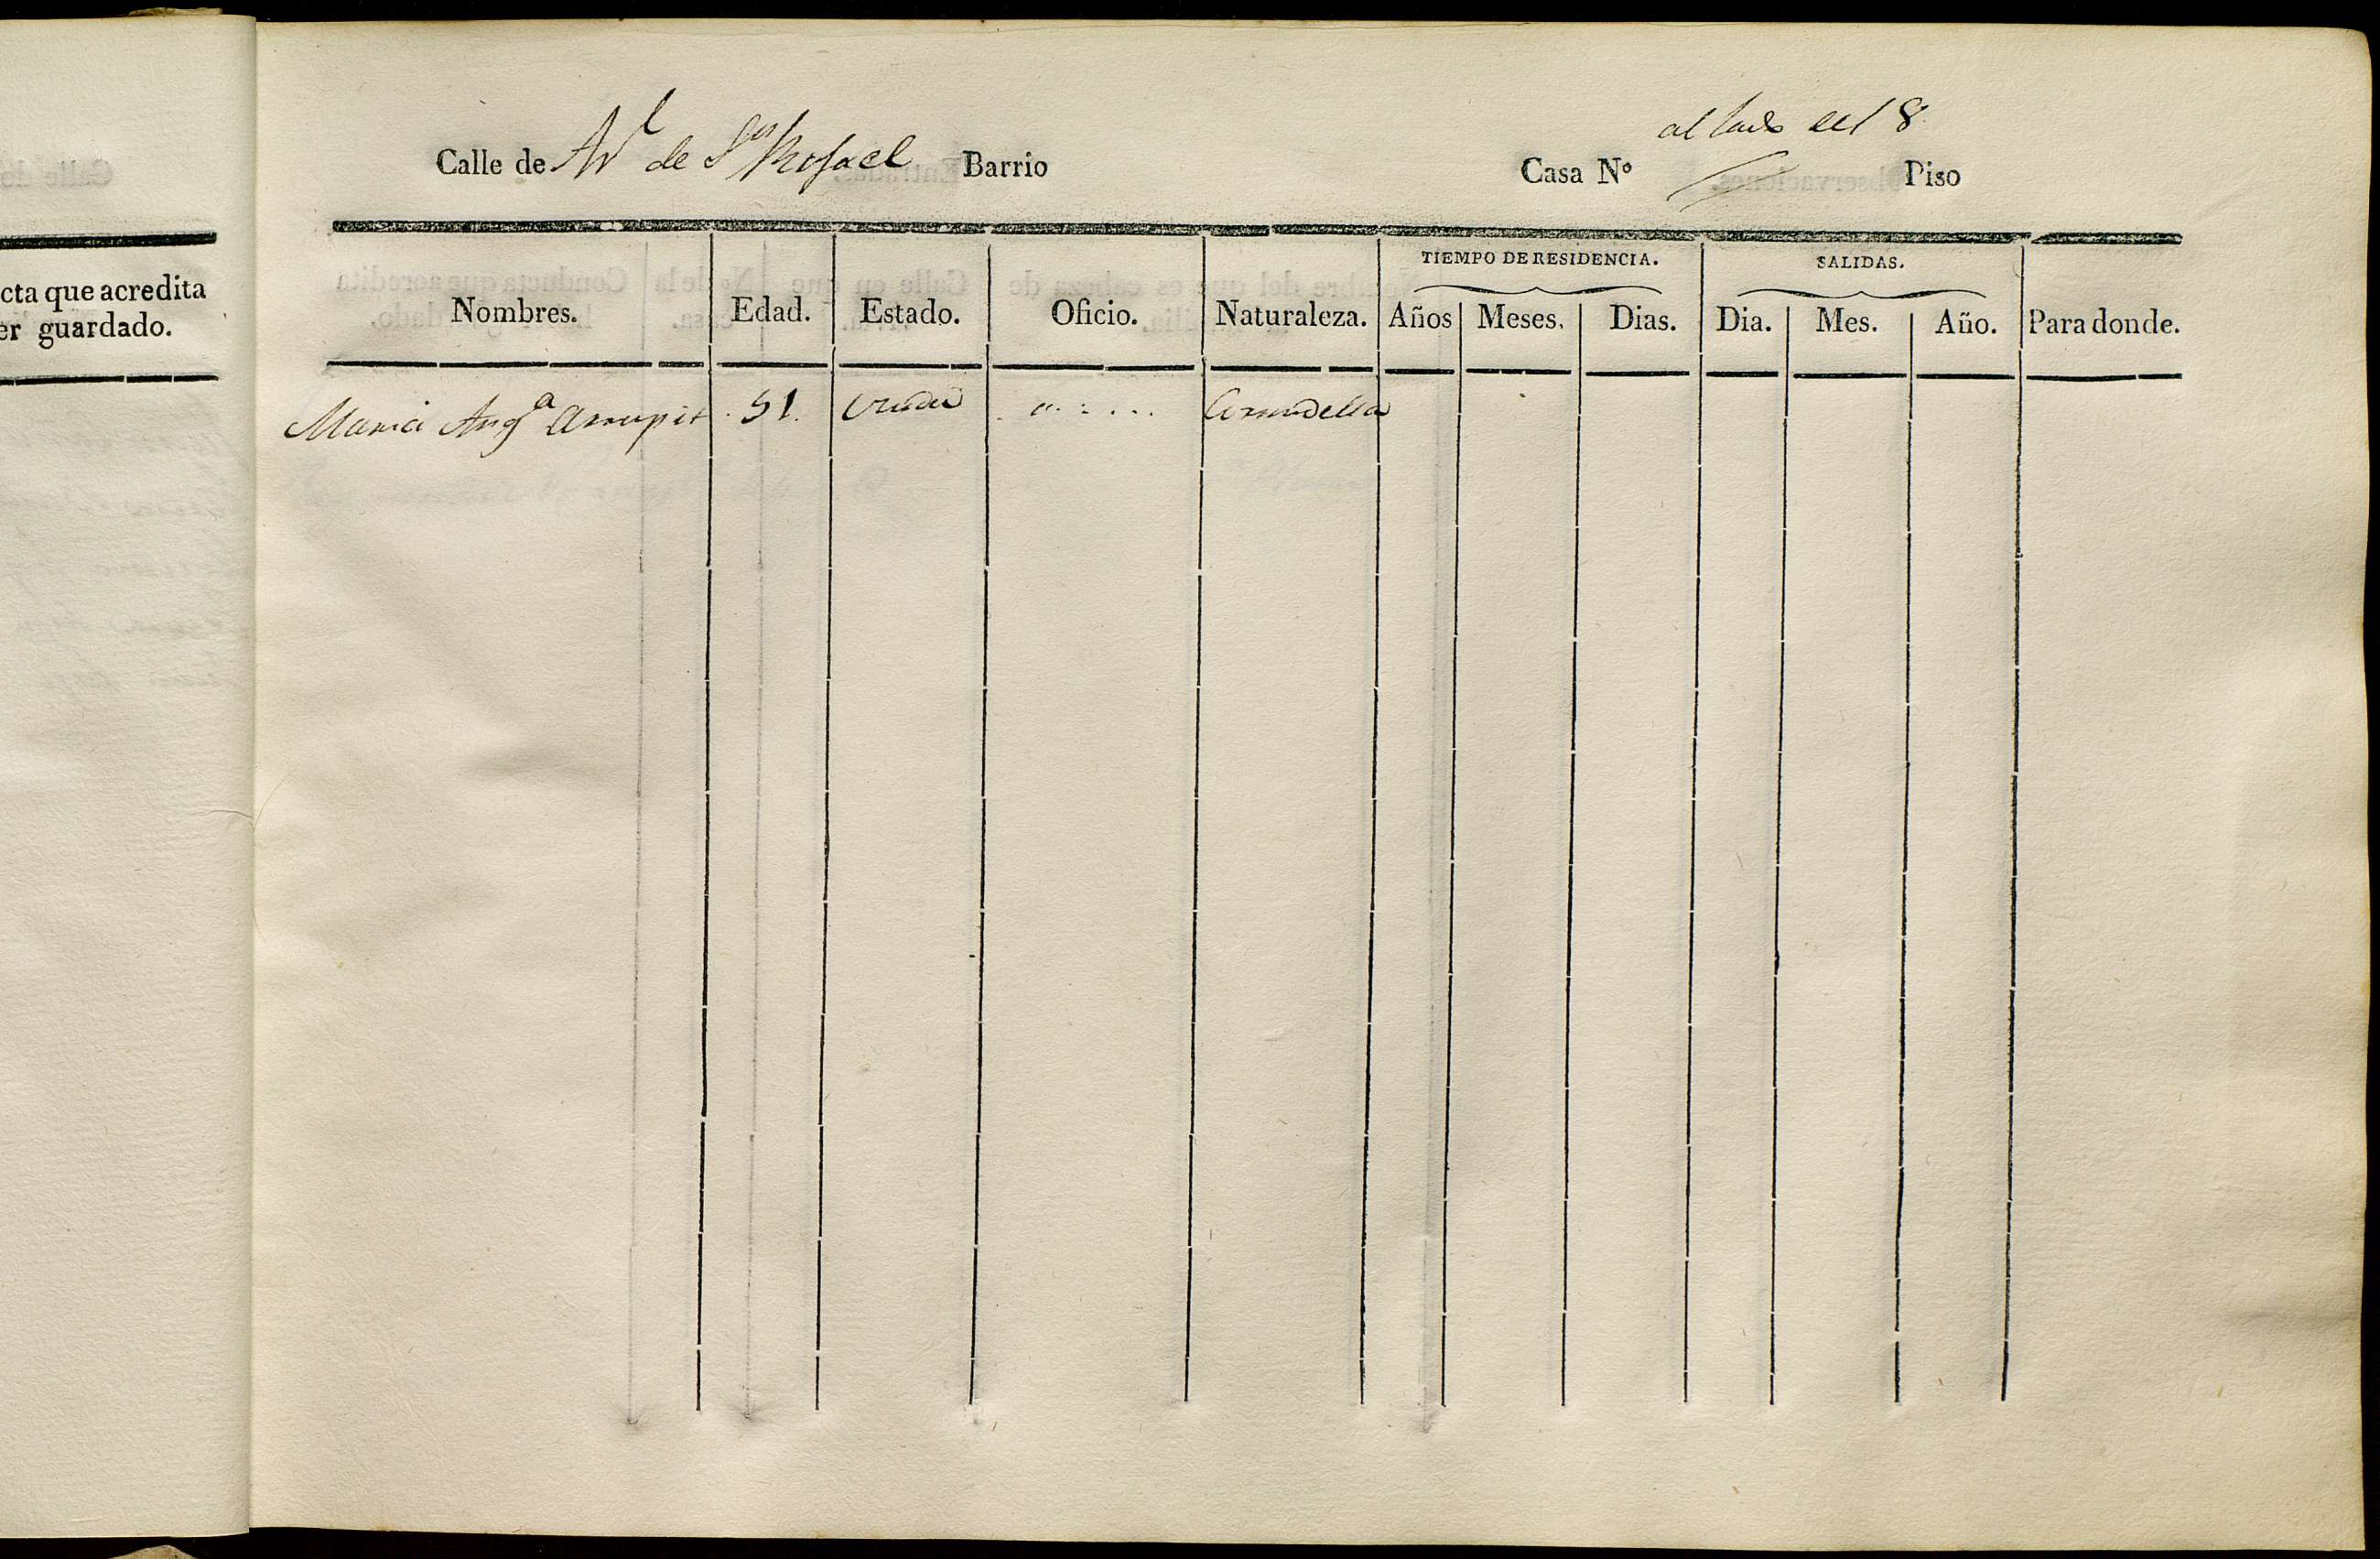 cta que acredita
er guardado.
al lado del 8
Calle de Ar.l de Sn Rafael Barrio Casa Nº Piso
TIEMPO DE RESIDENCIA. SALIDAS.
Nombres. Edad. Estado. Oficio. Naturaleza. Años Meses. Dias. Dia. Mes. Año. Para donde.
Maria Anga Arrupit . 51. viuda " . : . . . Cornudella